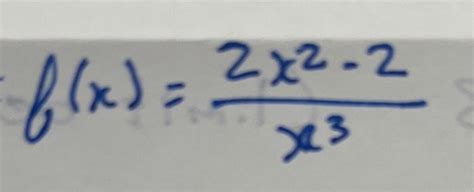 f(x) = \frac{2x^2 - 2}{x^3}